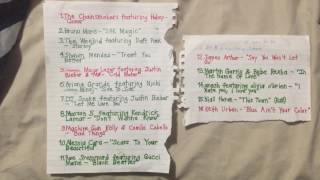 1. The Chainsmokers featuring Halsey
- Closer
2. Bruno Mars - "24K Magic"
3. The Weeknd featuring Daft Punk
- Starboy
4. Shawn Mendes - "Treat You
Better"
5. Major Lazer featuring Justin
Bieber & MØ - "Cold Water"
6. Ariana Grande featuring Nicki
Minaj - "Side To Side"
7. DJ Snake featuring Justin Bieber
- "Let Me Love You"
8. Maroon 5 featuring Kendrick
Lamar - "Don't Wanna Know"
9. Machine Gun Kelly & Camila Cabello
- "Bad Things"
10. Alessia Cara - "Scars To Your
Beautiful"
11. Rae Sremmurd featuring Gucci
Mane - "Black Beatles"
12. James Arthur - "Say You Won't Let
Go"
13. Martin Garrix & Bebe Rexha - "In
The Name Of Love"
14. gnash featuring olivia o'brien - "i
hate you, i love you"
15. Niall Horan - "This Town"
16. Keith Urban - "Blue Ain't Your Color"